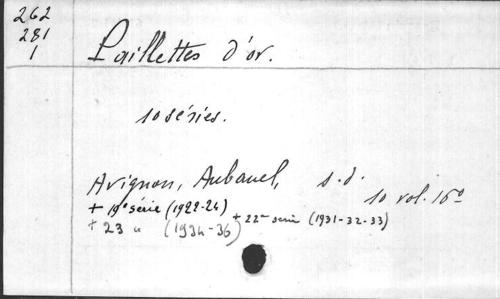 262
281
1
Paillettes d'or.
10 séries.
Avignon, Aubanel, s.d.
10 vol. 16º
+ 19e série (1922-24)
+ 22me serie (1931-32-33)
+ 23 " (1934-36)